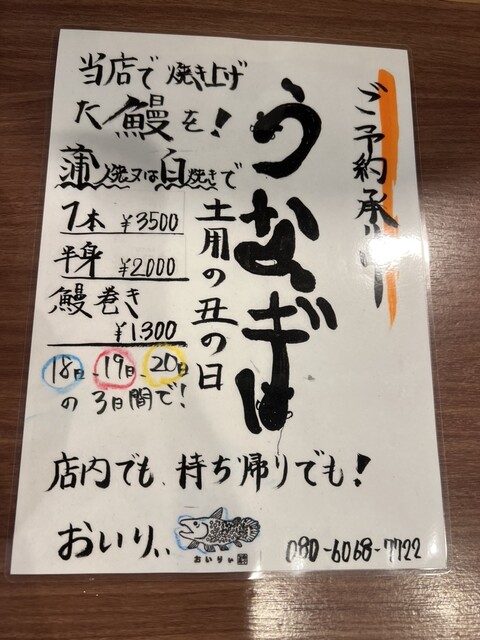 ご予約承り中
うなぎは
土用の丑の日
当店で焼き上げ
た鰻を!
蒲焼又は白焼きで
1本 ¥3500
半身 ¥2000
鰻巻き
¥1.300
18日 19日 20日
の3日間で!
店内でも、持ち帰りでも!
おいりぃ
おいりぃ
080-6068-7722